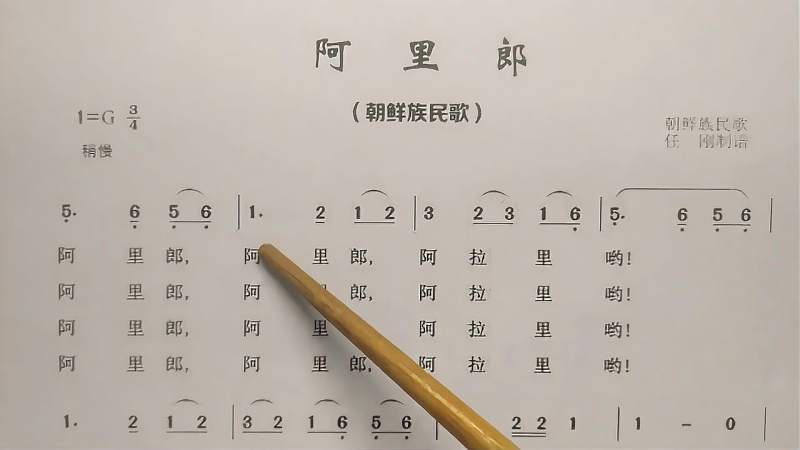 阿里郎
（朝鲜族民歌）
1=G 3/4
朝鲜族民歌
任 刚制谱
稍慢
5. 6 5 6 | 1. 2 1 2 | 3 2 3 1 6 | 5. 6 5 6 |
阿 里 郎, 阿 里 郎, 阿 拉 里 哟!
阿 里 郎, 阿 里 郎, 阿 拉 里 哟!
阿 里 郎, 阿 里 阿 拉 里 哟!
阿 里 郎, 阿 里 郎, 阿 拉 里 哟!
1. 2 1 2 | 3 2 1 6 5 6 2 2 1 | 1 - 0 |